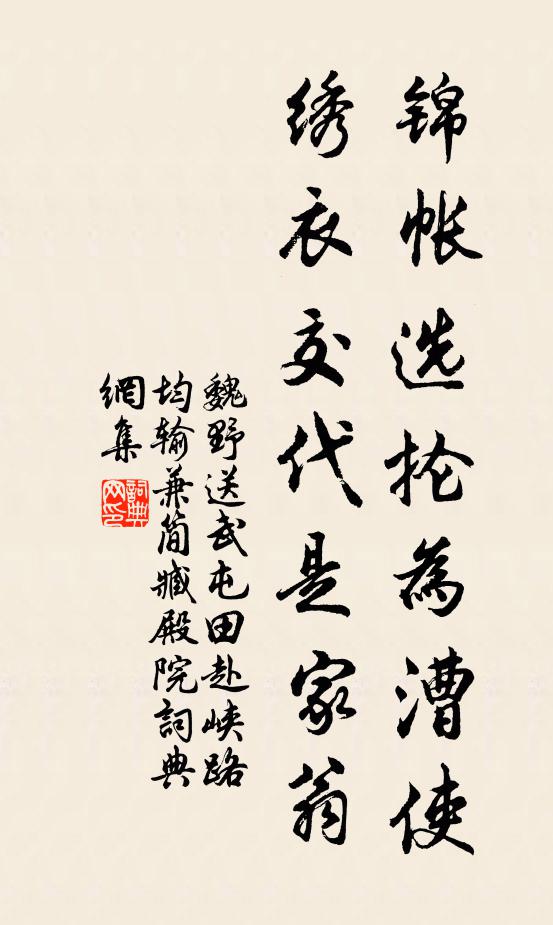 锦帐选抡为漕使
绣衣交代是家翁
魏野送武屯田赴峡路
均输兼简臧殿院詞典
網集
詞典
网印